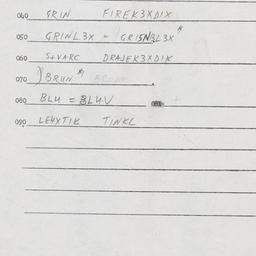 040 GRIN FIREK3XDIX
050 GRINL3X = GRISN3L3X
060 SVARC DRAJEK3XDIK
070 BRUN
080 BLU = BLUV
090 LE4XTIK TINKL